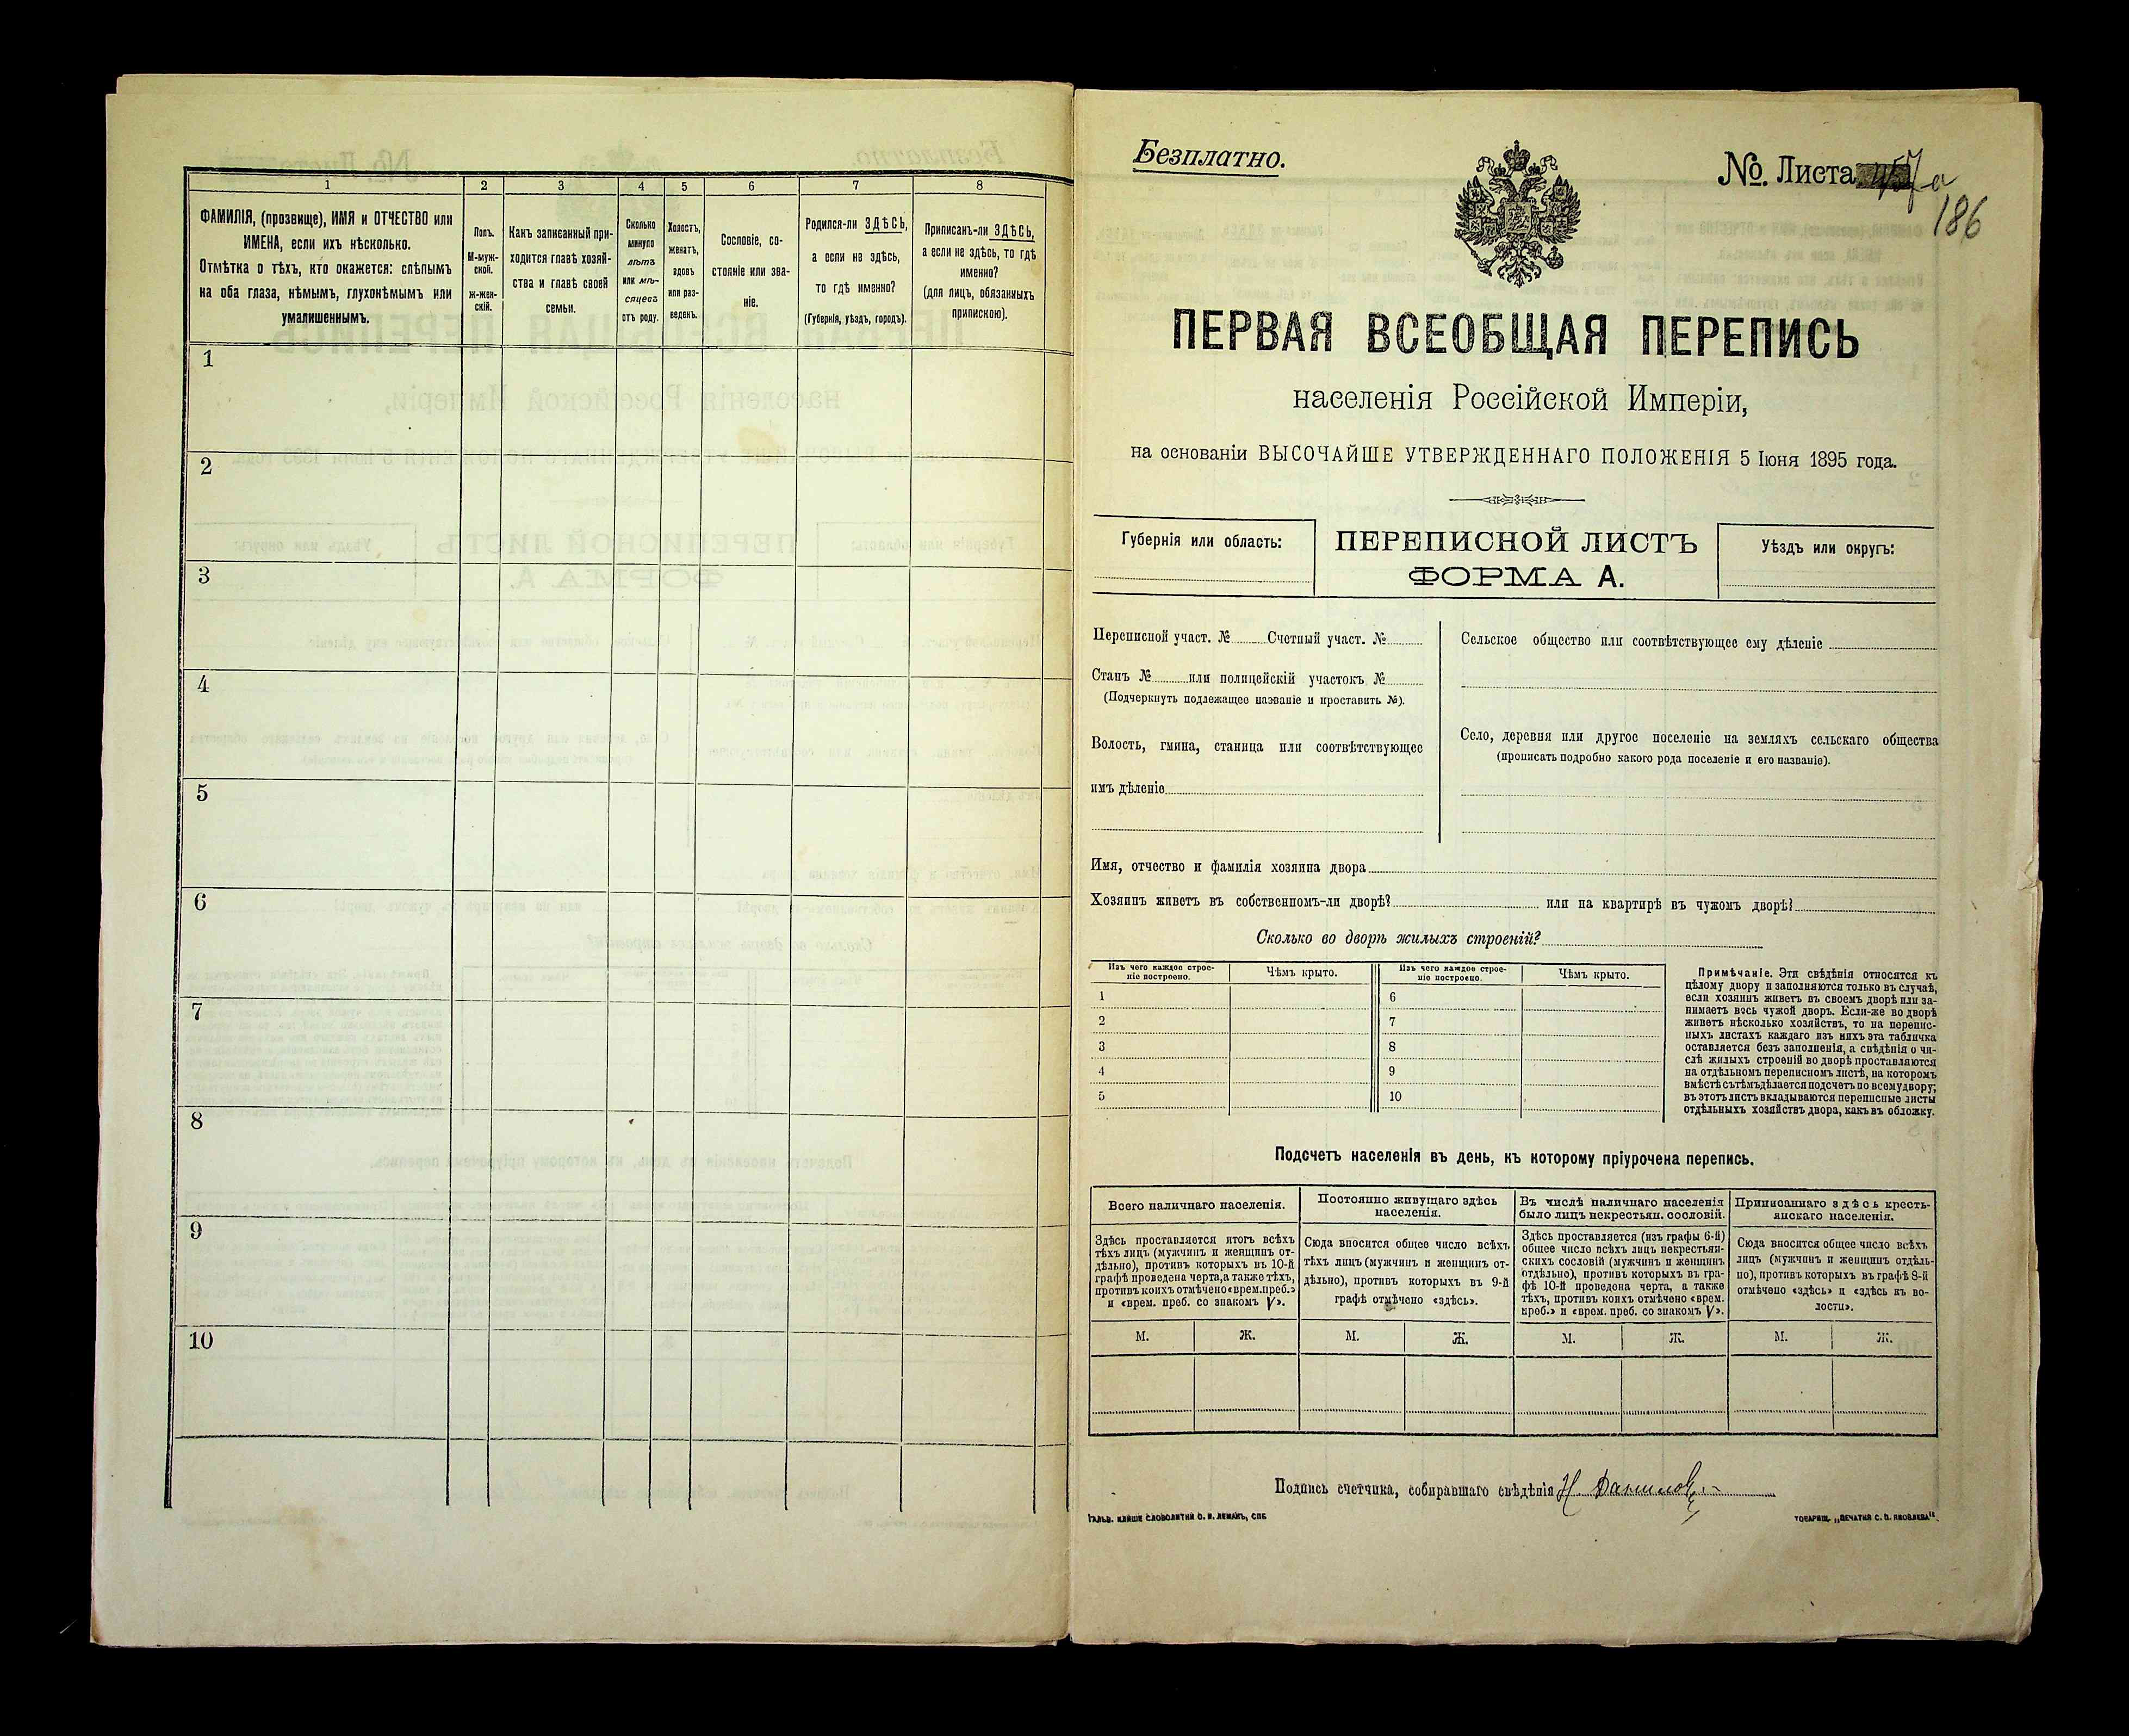 1 2 3 4 5 6 7 8
ФАМИЛІЯ, (прозвище), ИМЯ и ОТЧЕСТВО или
ИМЕНА, если ихъ нѣсколько.
Отмѣтка о тѣхъ, кто окажется: слѣпымъ
на оба глаза, нѣмымъ, глухонѣмымъ или
умалишеннымъ.
Полъ.
М-муж-
ской.
Ж-жен-
скій.
Какъ записанный при-
ходится главѣ хозяй-
ства и главѣ своей
семьи.
Сколько
минуло
лѣтъ
или мѣ-
сяцевъ
отъ роду.
Холостъ,
женатъ,
вдовъ
или раз-
веденъ.
Сословіе, со-
стояніе или зва-
ніе.
Родился-ли ЗДѢСЬ,
а если не здѣсь,
то гдѣ именно?
(Губернія, уѣздъ, городъ).
Приписанъ-ли ЗДѢСЬ,
а если не здѣсь, то гдѣ
именно?
(для лицъ, обязанныхъ
припискою).
1
2
3
4
5
6
7
8
9
10
Безплатно.
№. Листа 57а
186
ПЕРВАЯ ВСЕОБЩАЯ ПЕРЕПИСЬ
населенія Россійской Имперіи,
на основаніи ВЫСОЧАЙШЕ УТВЕРЖДЕННАГО ПОЛОЖЕНІЯ 5 Іюня 1895 года.
Губернія или область:
ПЕРЕПИСНОЙ ЛИСТЪ
ФОРМА А.
Уѣздъ или округъ:
Переписной участ. № Счетный участ. №
Станъ № или полицейскій участокъ №
(Подчеркнуть подлежащее названіе и проставить №).
Волость, гмина, станица или соотвѣтствующее
имъ дѣленіе
Сельское общество или соотвѣтствующее ему дѣленіе
Село, деревня или другое поселеніе на земляхъ сельскаго общества
(прописать подробно какого рода поселеніе и его названіе).
Имя, отчество и фамилія хозяина двора
Хозяинъ живетъ въ собственномъ-ли дворѣ? или на квартирѣ въ чужомъ дворѣ?
Сколько во дворѣ жилыхъ строеній?
Изъ чего каждое строе-
ніе построено.
Чѣмъ крыто.
Изъ чего каждое строе-
ніе построено.
Чѣмъ крыто.
1 6
2 7
3 8
4 9
5 10
Примѣчаніе. Эти свѣдѣнія относятся къ
цѣлому двору и заполняются только въ случаѣ,
если хозяинъ живетъ въ своемъ дворѣ или за-
нимаетъ весь чужой дворъ. Если-же во дворѣ
живетъ нѣсколько хозяйствъ, то на перепис-
ныхъ листахъ каждаго изъ нихъ эта табличка
оставляется безъ заполненія, а свѣдѣнія о чи-
слѣ жилыхъ строеній во дворѣ проставляются
на отдѣльномъ переписномъ листѣ, на которомъ
вмѣстѣ съ тѣмъ дѣлается подсчетъ по всему двору;
въ этотъ листъ вкладываются переписные листы
отдѣльныхъ хозяйствъ двора, какъ въ обложку.
Подсчетъ населенія въ день, къ которому пріурочена перепись.
Всего наличнаго населенія.
Постоянно живущаго здѣсь
населенія.
Въ числѣ наличнаго населенія
было лицъ некрестьян. сословій.
Приписаннаго здѣсь кресть-
янскаго населенія.
Здѣсь проставляется итогъ всѣхъ
тѣхъ лицъ (мужчинъ и женщинъ от-
дѣльно), противъ которыхъ въ 10-й
графѣ проведена черта, а также тѣхъ,
противъ коихъ отмѣчено «врем. преб.»
и «врем. преб. со знакомъ V».
Сюда вносится общее число всѣхъ
тѣхъ лицъ (мужчинъ и женщинъ от-
дѣльно), противъ которыхъ въ 9-й
графѣ отмѣчено «здѣсь».
Здѣсь проставляется (изъ графы 6-й)
общее число всѣхъ лицъ некрестьян-
скихъ сословій (мужчинъ и женщинъ
отдѣльно), противъ которыхъ въ гра-
фѣ 10-й проведена черта, а также
тѣхъ, противъ коихъ отмѣчено «врем.
преб.» и «врем. преб. со знакомъ V».
Сюда вносится общее число всѣхъ
лицъ (мужчинъ и женщинъ отдѣль-
но), противъ которыхъ въ графѣ 8-й
отмѣчено «здѣсь» и «здѣсь къ во-
лости».
М. Ж. М. Ж. М. Ж. М. Ж.
Подпись счетчика, собиравшаго свѣдѣнія Н. Данилов
ГАЛЬВ. КЛИШЕ СЛОВОЛИТНИ О. И. ЛЕМАНЪ, СПБ
ТОВАРИЩ. „ПЕЧАТНЯ С. П. ЯКОВЛЕВА“.